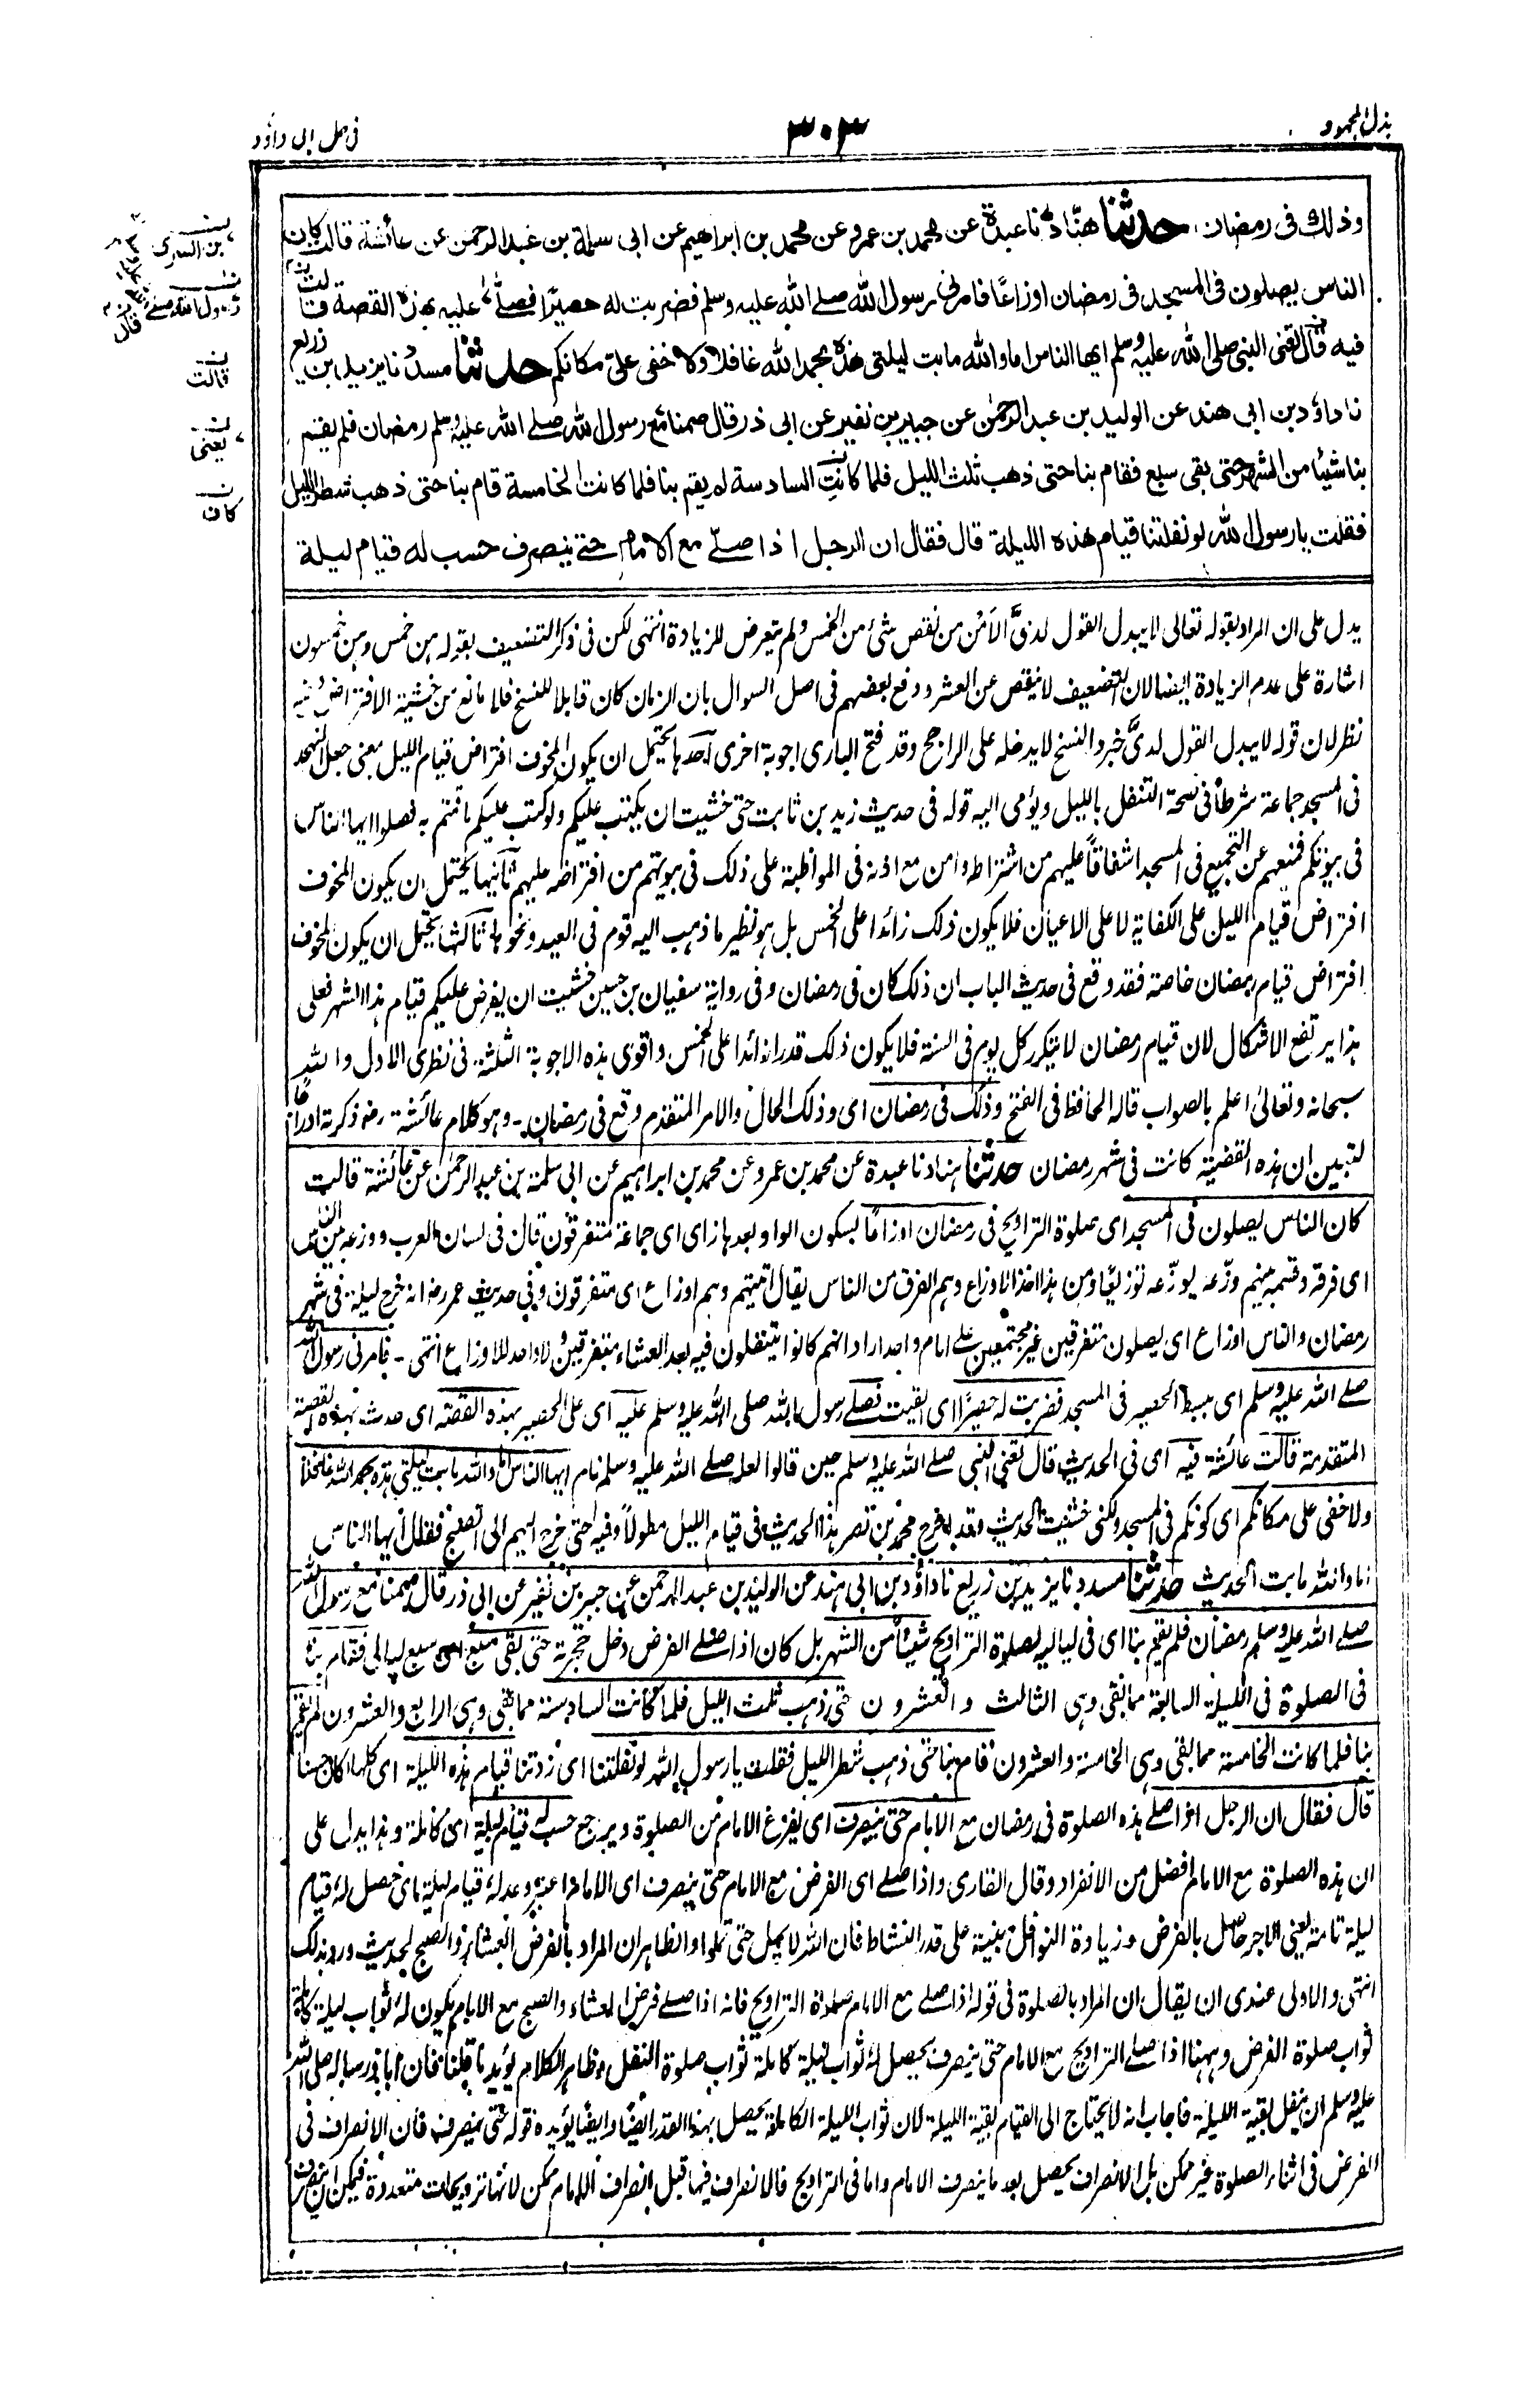 بذل المجهود
٣٠٣
فى حل ابى داؤد
وذلك فى رمضان، حدثنا هنّاد نا عبدة عن محمد بن عمرو عن محمد بن ابراهيم عن ابى سلمة بن عبد الرحمن عن عائشة قالت كان
الناس يصلون فى المسجد فى رمضان اوزاعًا فامرنى رسول الله صلے الله عليه وسلم فضربت له حصيرًا فصلّے عليه بهذه القصة قالت
فيه قال تعنى النبى صلى الله عليه وسلم ايها الناس اما والله ما بت ليلتى هذه بحمد الله غافلا ولا خفى علىّ مكانكم حدثنا مسدد نا يزيد بن زريع
نا داؤد بن ابى هند عن الوليد بن عبد الرحمٰن عن جبير بن نفير عن ابى ذر قال صمنا مع رسول الله صلے الله عليه وسلم رمضان فلم يقم
بنا شيئا من الشهر حتى بقى سبع فقام بنا حتى ذهب ثلث الليل فلما كانت السادسة لم يقم بنا فلما كانت الخامسة قام بنا حتى ذهب شطر الليل
فقلت يا رسول الله لو نفلتنا قيام هذه الليلة قال فقال ان الرجل اذا صلّے مع الامام حتے ينصرف حسب له قيام ليلة
بن السرى
قال
قالت
يعنى
كان
يدل على ان المراد بقوله تعالى لا يبدل القول لدىّ الامن من نقص شئ من الخمس ولم يتعرض للزيادة انتهى لكن فى ذكر التضعيف بقوله هن خمس وهن خمسون
اشارة على عدم الزيادة ايضا لان التضعيف لا ينقص عن العشر ودفع بعضهم فى اصل السوال بان الزمان كان قابلا للنسخ فلا مانع من خشية الافتراض وفيه
نظر لان قوله لا يبدل القول لدىّ خبر والنسخ لا يدخله على الراجح وقد فتح البارى اجوبة اخرى احدها يحتمل ان يكون المخوف افتراض قيام الليل بمعنى جعل التهجد
فى المسجد جماعة شرطا فى صحة التنفل بالليل ويؤمى اليه قوله فى حديث زيد بن ثابت حتى خشيت ان يكتب عليكم ولو كتب عليكم ما قمتم به فصلوا ايها الناس
فى بيوتكم فمنعهم عن التجميع فى المسجد اشفاقًا عليهم من اشتراطه وامن مع اذنه فى المواظبة على ذلك فى بيوتهم من افتراضه عليهم ثانيها يحتمل ان يكون المخوف
افتراض قيام الليل على الكفاية لا على الاعيان فلا يكون ذلك زائدا على الخمس بل هو نظير ما ذهب اليه قوم فى العيد ونحوها ثالثها يحتمل ان يكون المخوف
افتراض قيام رمضان خاصة فقد وقع فى حديث الباب ان ذلك كان فى رمضان وفى رواية سفيان بن حسين خشيت ان يفرض عليكم قيام هذا الشهر فعلى
هذا يرتفع الاشكال لان قيام رمضان لا يتكرر كل يوم فى السنة فلا يكون ذلك قدرا زائدا على الخمس واقوى هذه الاجوبة الثلثة فى نظرى الاول والله
سبحانه وتعالى اعلم بالصواب قاله الحافظ فى الفتح وذلك فى رمضان اى وذلك الحال والامر المتقدم وقع فى رمضان۔ وهو كلام عائشة رض ذكرته ادراجا
لتبيين ان هذه القضية كانت فى شهر رمضان حدثنا هناد نا عبدة عن محمد بن عمرو عن محمد بن ابراهيم عن ابى سلمة بن عبد الرحمٰن عن عائشة قالت
كان الناس يصلون فى المسجد اى صلوة التراويح فى رمضان اوزاعًا بسكون الواو بعدها زاى اى جماعة متفرقون قال فى لسان العرب ووزعه بين الناس
اى فرقه وقسمه بينهم وزّعه يوزّعه توزيعًا ومن هذا اخذ الاوزاع وهم الفرق من الناس يقال اتيتهم وهم اوزاع اى متفرقون وفى حديث عمر رض انه خرج ليلة فى شهر
رمضان والناس اوزاع اى يصلون متفرقين غير مجتمعين على امام واحد اراد انهم كانوا يتنفلون فيه بعد العشاء متفرقين ولا واحد للاوزاع انتهى۔ فامرنى رسول الله
صلے الله عليه وسلم اى ببسط الحصير فى المسجد فضربت له حصيرًا اى القيت فصلے رسول الله صلى الله عليه وسلم عليه اى على الحصير بهذه القصة اى حدث بهذه القصة
المتقدمة قالت عائشة فيه اى فى الحديث قال تعنى النبى صلے الله عليه وسلم حين قالوا لعله صلے الله عليه وسلم نام ايها الناس اما والله ما بت ليلتى هذه بحمد الله غافلا
ولا خفى على مكانكم اى كونكم فى المسجد ولكنى خشيت الحديث وقد اخرج محمد بن نصر هذا الحديث فى قيام الليل مطولا وفيه حتى خرج اليهم الى الصبح فقال ايها الناس
اما والله ما بت الحديث حدثنا مسدد نا يزيد بن زريع نا داؤد بن ابى هند عن الوليد بن عبد الرحمن عن جبير بن نفير عن ابى ذر قال صمنا مع رسول الله
صلے الله عليه وسلم رمضان فلم يقم بنا اى فى لياليه لصلوة التراويح شيئًا من الشهر بل كان اذا صلے الفرض دخل حجرته حتى بقى سبع اى سبع ليالى فقام بنا
فى الصلوة فى الليلة السابعة مما بقى وهى الثالث والعشرون حتى ذهب ثلث الليل فلما كانت السادسة مما بقى وهى الرابع والعشرون لم يقم
بنا فلما كانت الخامسة مما بقى وهى الخامسة والعشرون قام بنا حتى ذهب شطر الليل فقلت يا رسول الله لو نفلتنا اى زدتنا قيام هذه الليلة اى كلها كان حسنا
قال فقال ان الرجل اذا صلے هذه الصلوة فى رمضان مع الامام حتى ينصرف اى يفرغ الامام من الصلوة ويرجع حسب له قيام ليلة اى كاملة وهذا يدل على
ان هذه الصلوة مع الامام افضل من الانفراد وقال القارى واذا صلے اى الفرض مع الامام حتى ينصرف اى الامام اعتبر وعدله قيام ليلة اى حصل له قيام
ليلة تامة يعنى الاجر حاصل بالفرض وزيادة النوافل مبنية على قدر النشاط فان الله لا يمل حتى تملوا والظاهر ان المراد بالفرض العشاء والصبح لحديث ورد بذلك
انتهى والاولى عندى ان يقال ان المراد بالصلوة فى قوله اذا صلے مع الامام صلوة التراويح فانه اذا صلے فرض العشاء والصبح مع الامام يكون له ثواب ليلة كاملة
ثواب صلوة الفرض وههنا اذا صلے التراويح مع الامام حتى ينصرف يحصل له ثواب ليلة كاملة ثواب صلوة النفل وظاهر الكلام يؤيد ما قلنا فان ابا ذر ساله صلى الله
عليه وسلم ان ينفل بقية الليلة فاجاب انه لا يحتاج الى القيام بقية الليلة لان ثواب الليلة الكاملة يحصل بهذا القدر ايضا وايضا يؤيده قوله حتى ينصرف فان الانصراف فى
الفرض فى اثناء الصلوة غير ممكن بل الانصراف يحصل بعد ما ينصرف الامام واما فى التراويح فالانصراف فيها قبل انصراف الامام ممكن لانها ترويحات متعددة فيمكن ان ينصرف